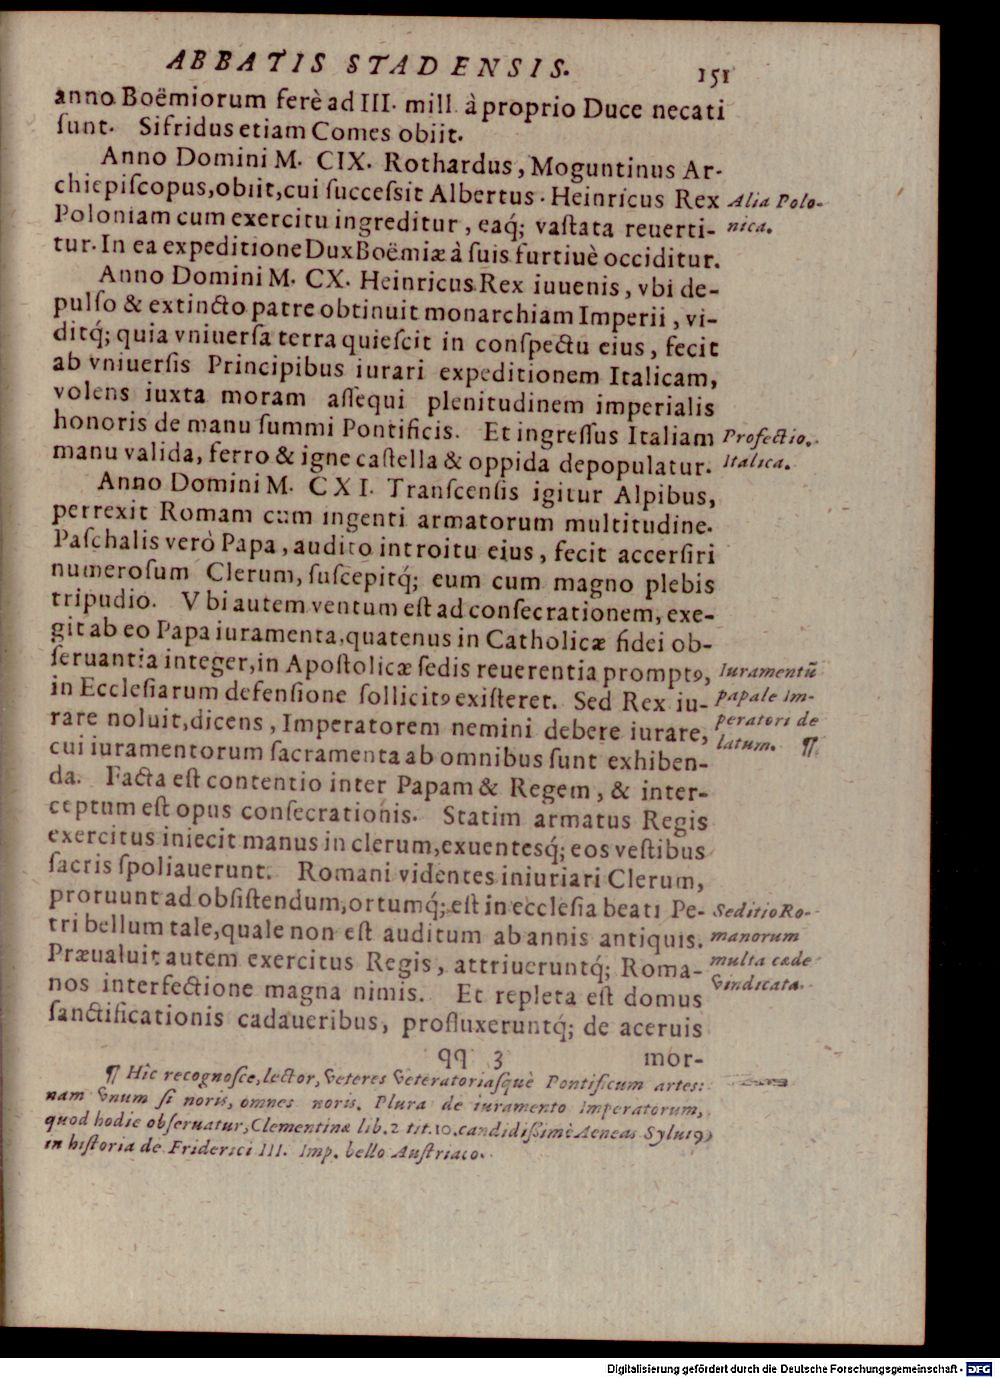 ABBATIS STADENSIS. 151
anno Boëmiorum ferè ad III. mill. à proprio Duce necati
ſunt. Sifridus etiam Comes obiit.
Anno Domini M. CIX. Rothardus, Moguntinus Ar-
chiepiſcopus, obiit, cui ſucceſsit Albertus. Heinricus Rex
Poloniam cum exercitu ingreditur, eaq́; vaſtata reuerti-
tur. In ea expeditione Dux Boëmiæ à ſuis furtiuè occiditur.
Anno Domini M. CX. Heinricus Rex iuuenis, vbi de-
pulſo & extincto patre obtinuit monarchiam Imperii, vi-
ditq́; quia vniuerſa terra quieſcit in conſpectu eius, fecit
ab vniuerſis Principibus iurari expeditionem Italicam,
volens iuxta moram aſſequi plenitudinem imperialis
honoris de manu ſummi Pontificis. Et ingreſſus Italiam
manu valida, ferro & igne caſtella & oppida depopulatur.
Anno Domini M. CXI. Tranſcenſis igitur Alpibus,
perrexit Romam cum ingenti armatorum multitudine.
Paſchalis verò Papa, audito introitu eius, fecit accerſiri
numeroſum Clerum, ſuſcepitq́; eum cum magno plebis
tripudio. Vbi autem ventum eſt ad conſecrationem, exe-
git ab eo Papa iuramenta, quatenus in Catholicæ fidei ob-
ſeruantia integer, in Apoſtolicæ ſedis reuerentia promptꝯ,
in Eccleſiarum defenſione ſollicitꝯ exiſteret. Sed Rex iu-
rare noluit, dicens, Imperatorem nemini debere iurare,
cui iuramentorum ſacramenta ab omnibus ſunt exhiben-
da. Facta eſt contentio inter Papam & Regem, & inter-
ceptum eſt opus conſecrationis. Statim armatus Regis
exercitus iniecit manus in clerum, exuentesq́; eos veſtibus
ſacris ſpoliauerunt. Romani videntes iniuriari Clerum,
proruunt ad obſiſtendum, ortumq́; eſt in eccleſia beati Pe-
tri bellum tale, quale non eſt auditum ab annis antiquis.
Præualuit autem exercitus Regis, attriueruntq́; Roma-
nos interfectione magna nimis. Et repleta eſt domus
ſanctificationis cadaueribus, profluxeruntq́; de aceruis
qq 3 mor-
Alia Polo-
nica.
Profectio
Italica.
Iuramentũ
papale Im-
peratori de
latum. ¶
Seditio Ro-
manorum
multa cæde
vindicata.
¶ Hîc recognoſce, lector, veteres veteratoriasque Pontificum artes:
nam vnum ſi noris, omnes noris. Plura de iuramento Imperatorum,
quod hodie obſeruatur, Clementinæ lib. 2 tit. 10. candidiſsimè Aeneas Syluiꝯ
in hiſtoria de Friderici III. Imp. bello Auſtriaco.
Digitalisierung gefördert durch die Deutsche Forschungsgemeinschaft - DFG